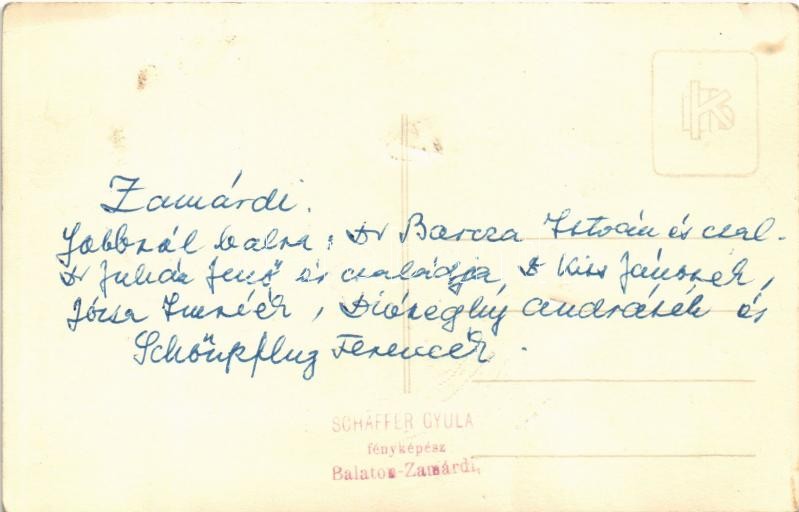 Zamárdi.
Jobbról balra: Dr Barcza István és csal.
Dr Juhás Jenő és családja, Dr Kiss Jánosék,
Józsa Imréék, Diószeghy Andrásék és
Schönpflug Ferencék.
SCHÄFFER GYULA
fényképész
Balaton-Zamárdi,